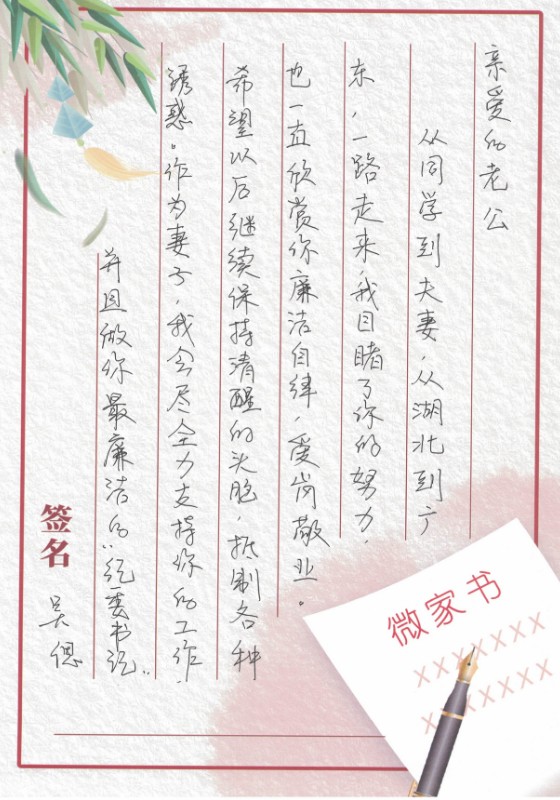 亲爱的老公
从同学到夫妻，从湖北到广
东，一路走来，我目睹了你的努力，
也一直欣赏你廉洁自律，爱岗敬业。
希望以后继续保持清醒的头脑，抵制各种
诱惑。作为妻子，我会尽全力支持你的工作，
并且做你最廉洁的“纪委书记”
签名 吴偲
微家书
XXXXXXX
XXXXXXX